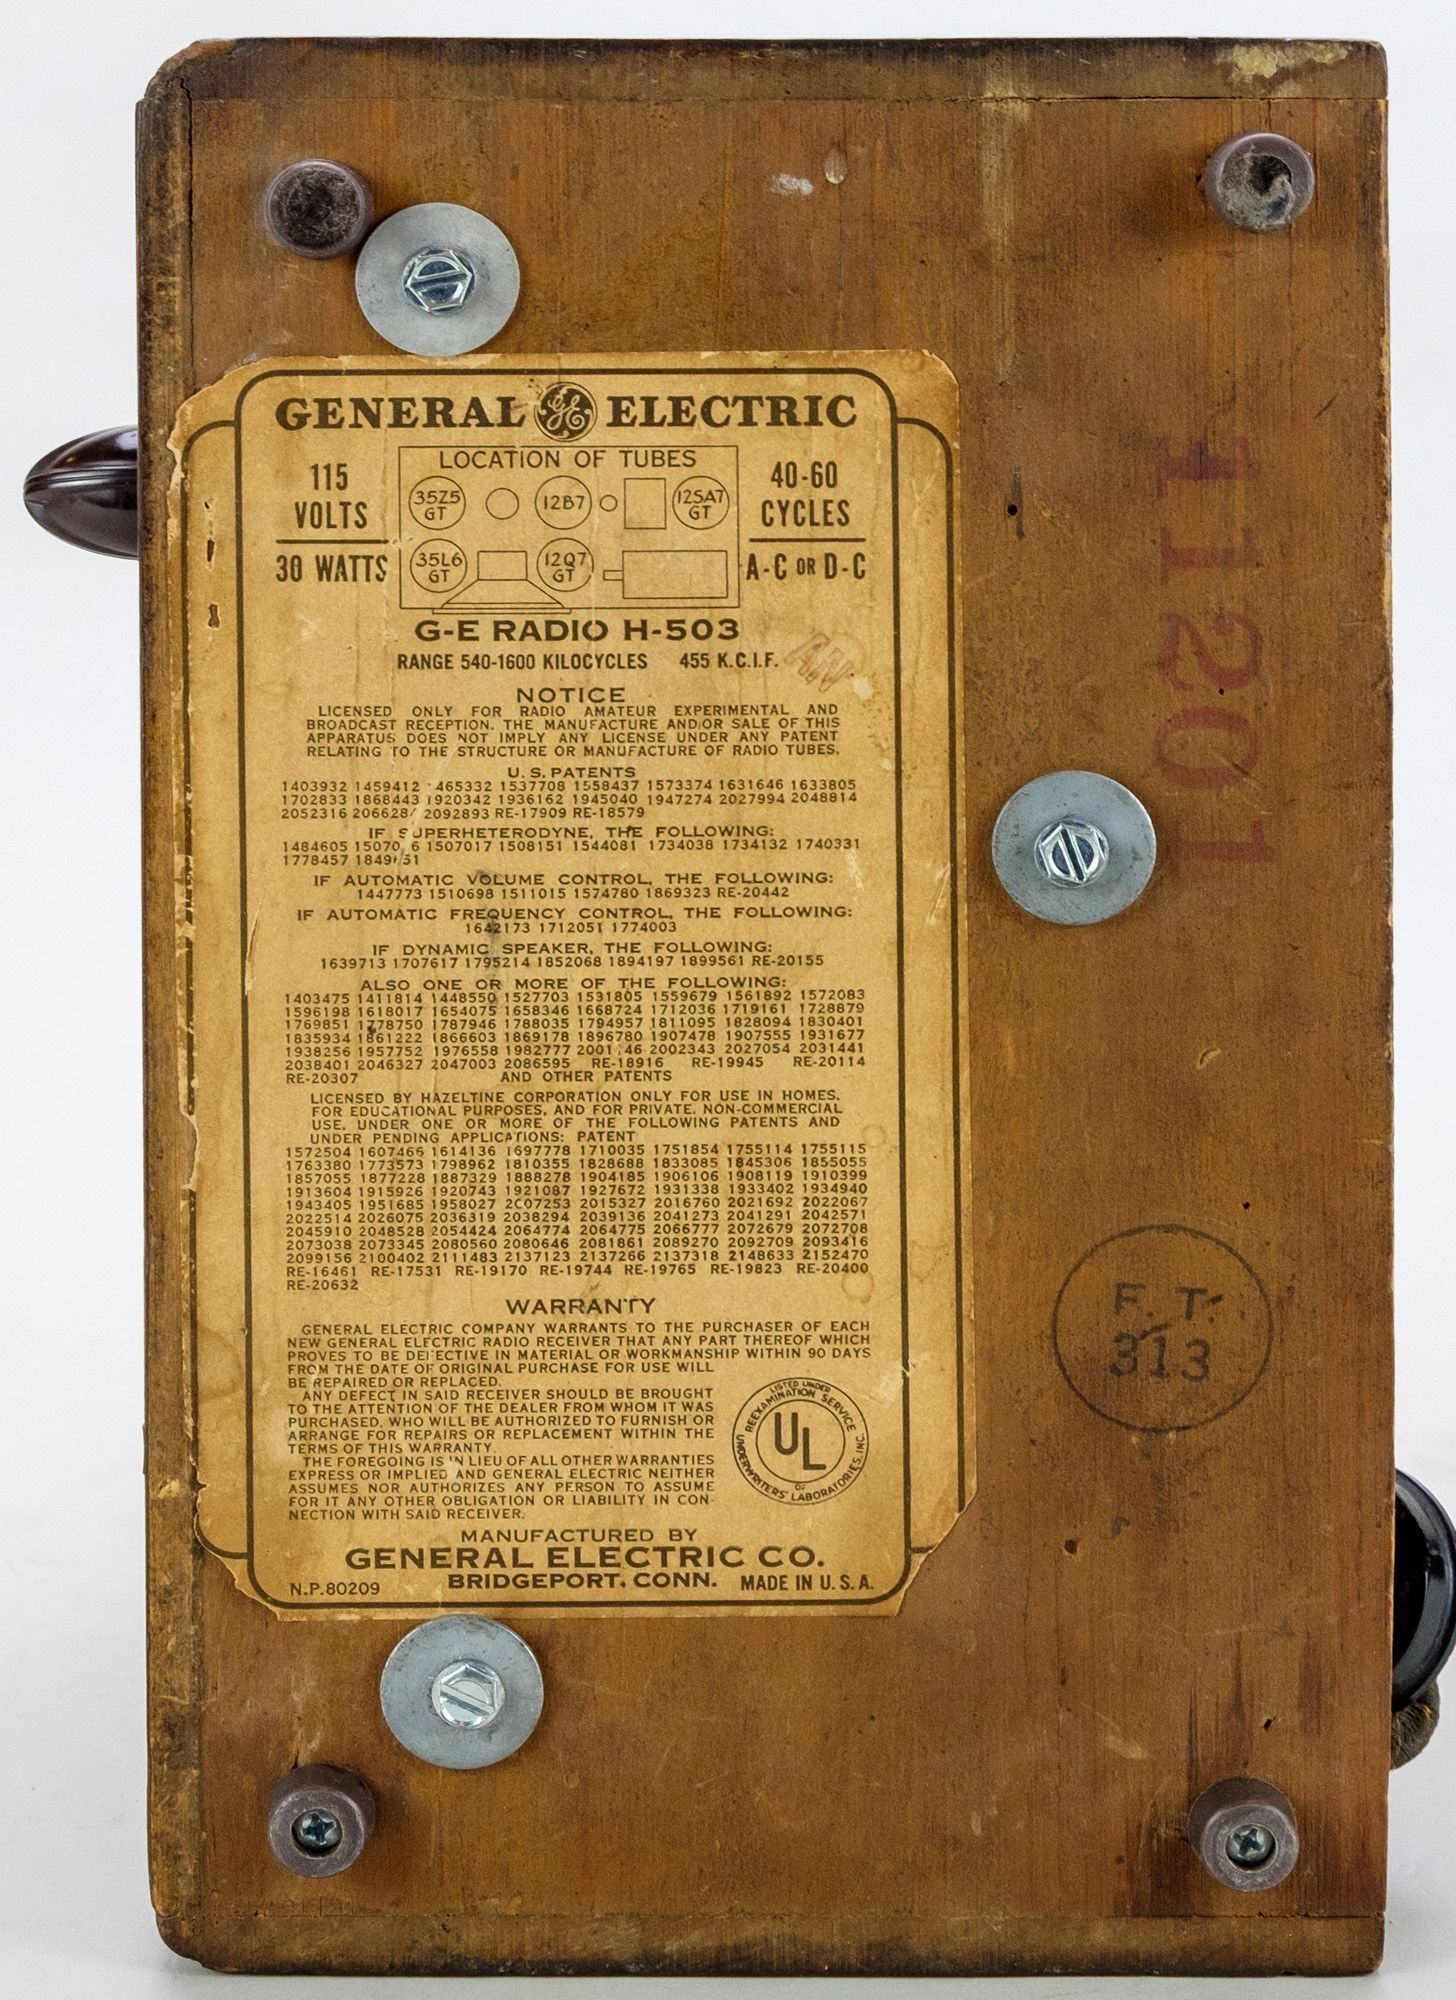 GENERAL GE ELECTRIC
115
VOLTS
30 WATTS
LOCATION OF TUBES
35Z5
GT
12B7
12SA7
GT
35L6
GT
12Q7
GT
40-60
CYCLES
A-C OR D-C
G-E RADIO H-503
RANGE 540-1600 KILOCYCLES 455 K.C.I.F.
NOTICE
LICENSED ONLY FOR RADIO AMATEUR EXPERIMENTAL AND
BROADCAST RECEPTION. THE MANUFACTURE AND/OR SALE OF THIS
APPARATUS DOES NOT IMPLY ANY LICENSE UNDER ANY PATENT
RELATING TO THE STRUCTURE OR MANUFACTURE OF RADIO TUBES.
U.S. PATENTS
1403932 1459412 465332 1537708 1558437 1573374 1631646 1633805
1702833 1868443 1920342 1936162 1945040 1947274 2027994 2048814
2052316 2066284 2092893 RE-17909 RE-18579
IF SUPERHETERODYNE, THE FOLLOWING:
1484605 1507017 1508151 1544081 1734038 1734132 1740331
1778457
IF AUTOMATIC VOLUME CONTROL, THE FOLLOWING:
1447773 1510698 1511015 1574780 1869323 RE-20442
IF AUTOMATIC FREQUENCY CONTROL, THE FOLLOWING:
1642173 1712051 1774003
IF DYNAMIC SPEAKER, THE FOLLOWING:
1639713 1707617 1795214 1852068 1894197 1899561 RE-20155
ALSO ONE OR MORE OF THE FOLLOWING:
1403475 1411814 1448550 1527703 1531805 1559679 1561892 1572083
1596198 1618017 1654075 1658346 1668724 1712036 1719161 1728879
1769851 1778750 1787946 1788035 1794957 1811095 1828094 1830401
1835934 1861222 1866603 1869178 1896780 1907478 1907555 1931677
1938256 1957752 1976558 1982777 2002343 2027054 2031441
2038401 2046327 2047003 2086595 RE-18916 RE-19945 RE-20114
RE-20307 AND OTHER PATENTS
LICENSED BY HAZELTINE CORPORATION ONLY FOR USE IN HOMES,
FOR EDUCATIONAL PURPOSES, AND FOR PRIVATE, NON-COMMERCIAL
USE, UNDER ONE OR MORE OF THE FOLLOWING PATENTS AND
UNDER PENDING APPLICATIONS: PATENT
1572504 1607466 1614136 1697778 1710035 1751854 1755114 1755115
1763380 1773573 1798962 1810355 1828688 1833085 1845306 1855055
1857055 1877228 1887329 1888278 1904185 1906106 1908119 1910399
1913604 1915926 1920743 1921087 1927672 1931338 1933402 1934940
1943405 1951685 1958027 2007253 2015327 2016760 2021692 2022067
2022514 2026075 2036319 2038294 2039136 2041273 2041291 2042571
2045910 2048528 2054424 2064774 2064775 2066777 2072679 2072708
2073038 2073345 2080560 2080646 2081861 2089270 2092709 2093416
2099156 2100402 2111483 2137123 2137266 2137318 2148633 2152470
RE-16461 RE-17531 RE-19170 RE-19744 RE-19765 RE-19823 RE-20400
RE-20632
WARRANTY
GENERAL ELECTRIC COMPANY WARRANTS TO THE PURCHASER OF EACH
NEW GENERAL ELECTRIC RADIO RECEIVER THAT ANY PART THEREOF WHICH
PROVES TO BE DEFECTIVE IN MATERIAL OR WORKMANSHIP WITHIN 90 DAYS
FROM THE DATE OF ORIGINAL PURCHASE FOR USE WILL
BE REPAIRED OR REPLACED.
ANY DEFECT IN SAID RECEIVER SHOULD BE BROUGHT
TO THE ATTENTION OF THE DEALER FROM WHOM IT WAS
PURCHASED, WHO WILL BE AUTHORIZED TO FURNISH OR
ARRANGE FOR REPAIRS OR REPLACEMENT WITHIN THE
TERMS OF THIS WARRANTY.
THE FOREGOING IS IN LIEU OF ALL OTHER WARRANTIES
EXPRESS OR IMPLIED AND GENERAL ELECTRIC NEITHER
ASSUMES NOR AUTHORIZES ANY PERSON TO ASSUME
FOR IT ANY OTHER OBLIGATION OR LIABILITY IN CON-
NECTION WITH SAID RECEIVER.
LISTED UNDER
REEXAMINATION SERVICE
UL
OF
UNDERWRITERS' LABORATORIES, INC.
MANUFACTURED BY
GENERAL ELECTRIC CO.
BRIDGEPORT, CONN.
N.P.80209
MADE IN U.S.A.
11201
F.T.
313